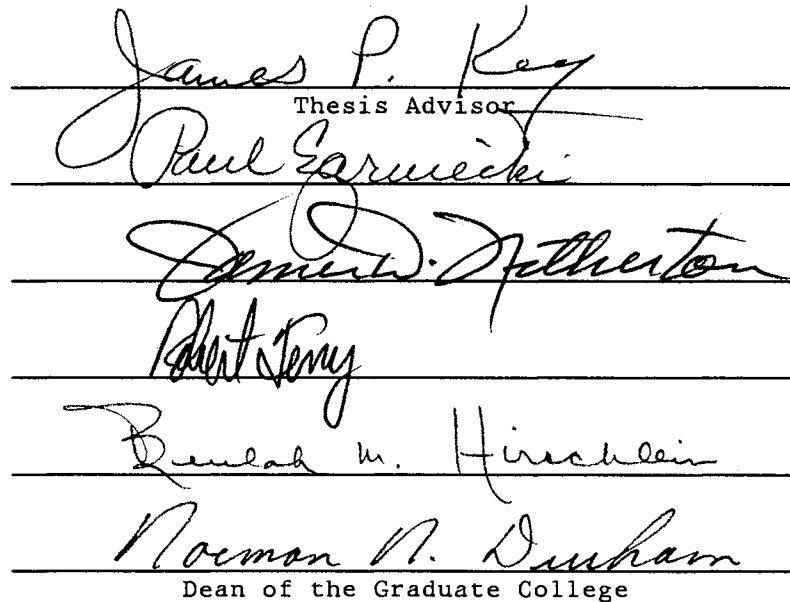 James P. Key
Thesis Advisor
Paul
James D. Netherton
Robert Terry
Beulah M. Hirschlein
Norman N. Durham
Dean of the Graduate College